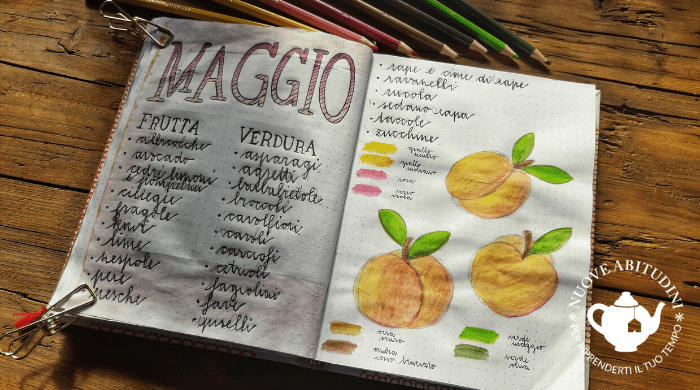 MAGGIO
FRUTTA
albicocche
avocado
cedri limoni
e pompelmi
ciliegie
fragole
kiwi
lime
nespole
pere
pesche
VERDURA
asparagi
agretti
barbabietole
broccoli
cavolfiori
cavoli
carciofi
cetrioli
fagiolini
fave
piselli
rape e cime di rape
ravanelli
rucola
sedano rapa
taccole
zucchine
giallo
giallo
rosa
ocra
verde
verde
oliva
NUOVE ABITUDINI
PER RIPRENDERTI IL TUO TEMPO